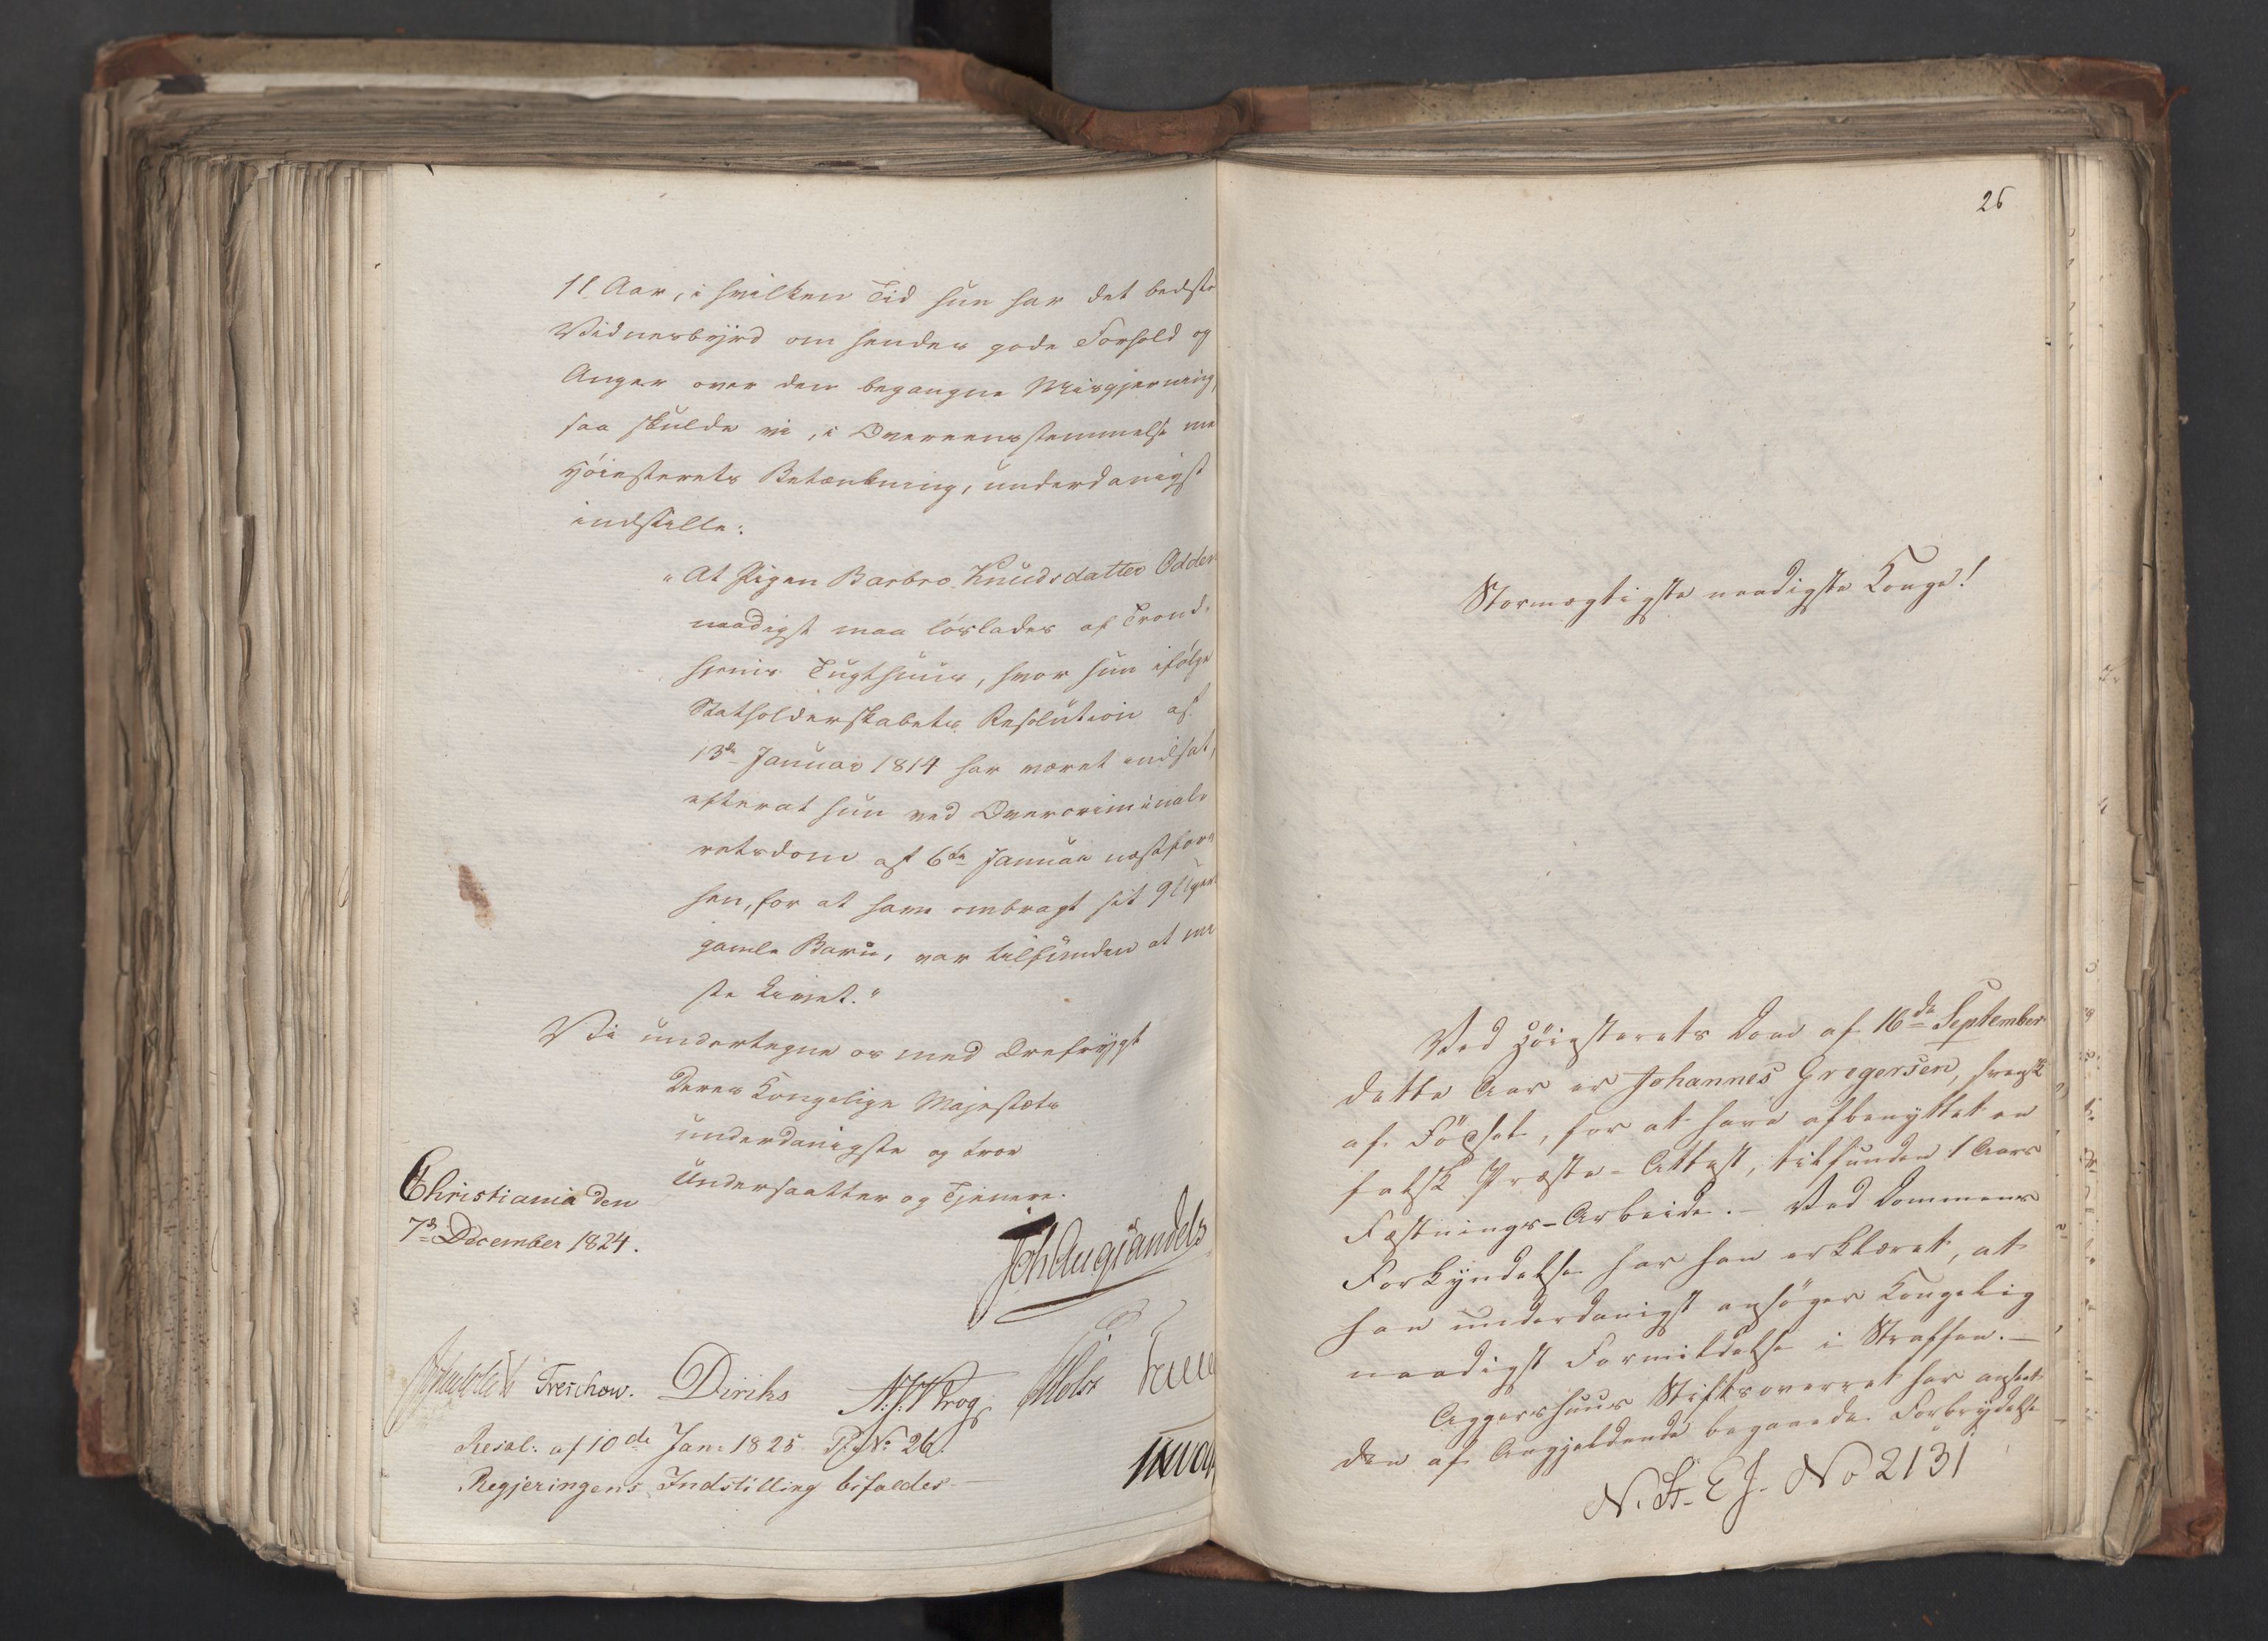 11 Aar, i hvilken Tid hun har det bedste
Vidnesbyrd om hendes gode Forhold og
Anger over den begangne Misgjerning,
saa skulde vi, i Overeensstemmelse me
Höiesterets Betænkning, underdanigst
indstille:
"At Pigen Barbro Knudsdatter Odder
naadigst maa löslades af Trond-
hjems Tugthuus, hvor hun ifölge
Statholderskabets Resolution af
13de Januar 1814 har været indsat,
efterat hun ved Overcriminal-
retsdom af 6te Januar næstfor-
hen, for at have ombragt sit 9 Uger
gamle Barn, var tilfunden at mi
ste Livet."
Vi undertegne os med Ærefrygt
Deres Kongelige Majestæts
underdanigste og troe
Undersaatter og Tjenere.
Christiania den
7de December 1824.
Joh Aug Sandels
Treschow. Diriks Holst
Resol: af 10de Jan: 1825. No 26.
Regjeringens Indstilling bifaldes
26
Stormægtigste naadigste Konge!
Ved Höiesterets Dom af 16de September
dette Aar er Johannes Gregersen, svensk
af Födsel, for at have afbenyttet en
falsk Præste-Attest, tilfunden 1 Aars
Fæstnings-Arbeide. - Ved Dommens
Forkyndelse har han erklæret, at
han underdanigst ansöger Kongelig
naadigst Formildelse i Straffen. -
Aggershuus Stiftsoverret har anseet
den af Angjeldende begaaede Forbrydelse
N. St. E J. No 2131